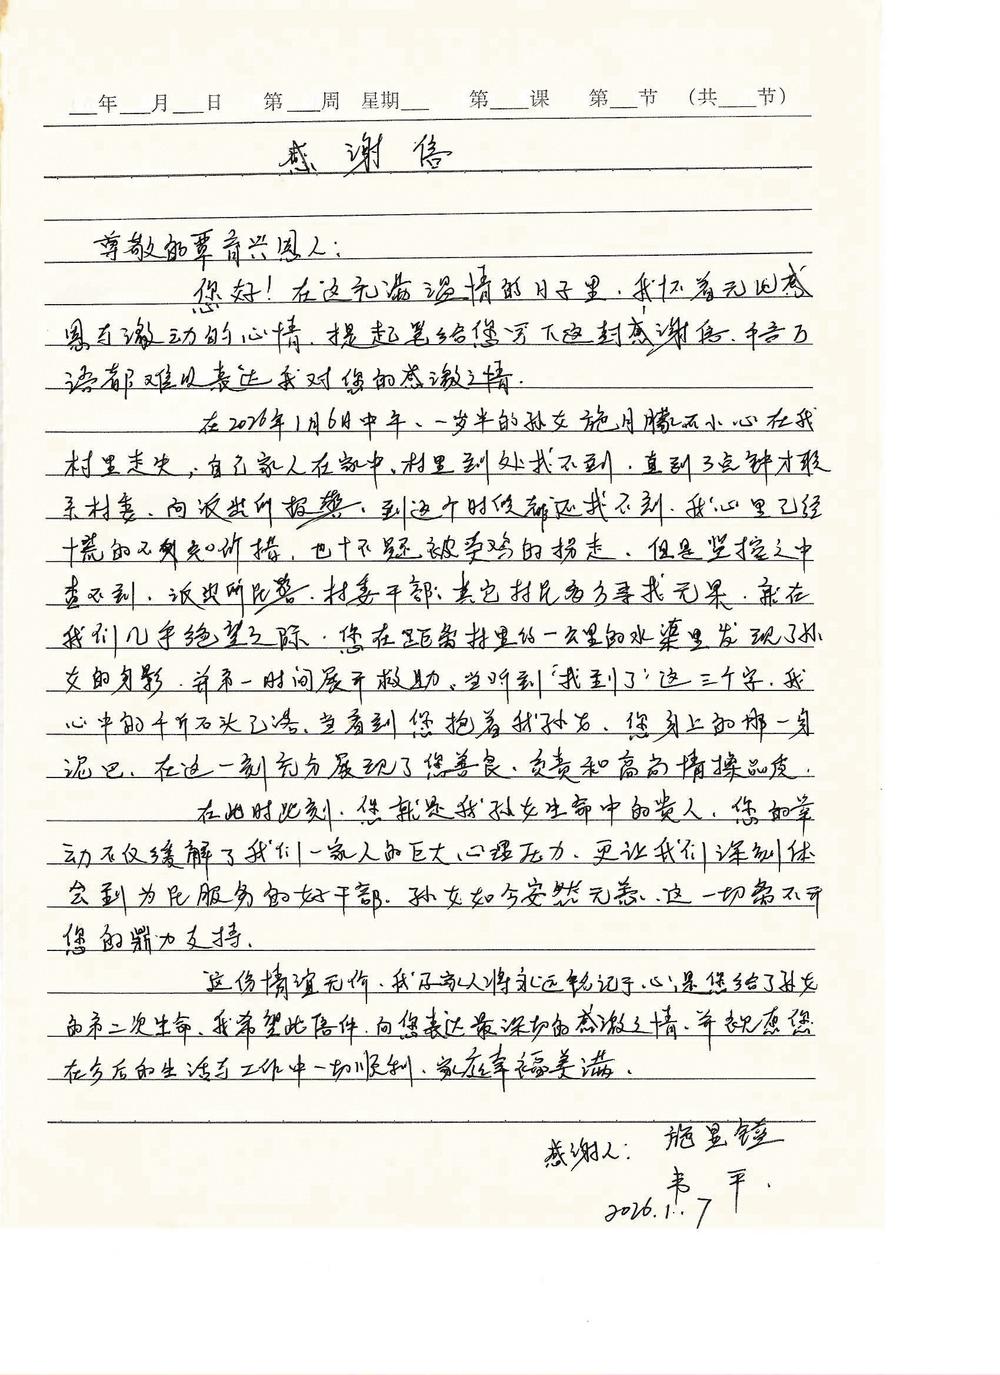 年 月 日 第 周 星期 第 课 第 节 (共 节)
感谢信
尊敬的覃育兴恩人:
您好!在这充满温情的日子里,我怀着无比感
恩与激动的心情,提起笔给您写下这封感谢信,千言万
语都难以表达我对您的感激之情.
在2026年1月6日中午、一岁半的孙女施月朦不小心在我
村里走失,自己家人在家中、村里到处找不到,直到3点钟才联
系村委、向派出所报警,到这个时候都还找不到,我心里已经
慌的不知所措,也十怀疑被卖鸡的拐走,但是监控之中
查不到,派出所民警、村委干部、其它村民多方寻找无果,就在
我们几乎绝望之际,您在距离村里约一公里的水渠里发现了孙
女的身影,并第一时间展开救助、当听到"找到了"这三个字,我
心中的千斤石头已落,当看到您抱着我孙女,您身上的那一身
泥巴,在这一刻充分展现了您善良、负责和高尚情操品质.
在此时此刻,您就是我孙女生命中的贵人,您的举
动不仅缓解了我们一家人的巨大心理压力,更让我们深刻体
会到为民服务的好干部.孙女如今安然无恙,这一切离不开
您的鼎力支持.
这份情谊无价,我及家人将永远铭记于心,是您给了孙女
的第二次生命、我希望此信件,向您表达最深切的感激之情、并祝愿您
在今后的生活与工作中一切顺利、家庭幸福美满.
感谢人: 施显
韦 平.
2026.1.7